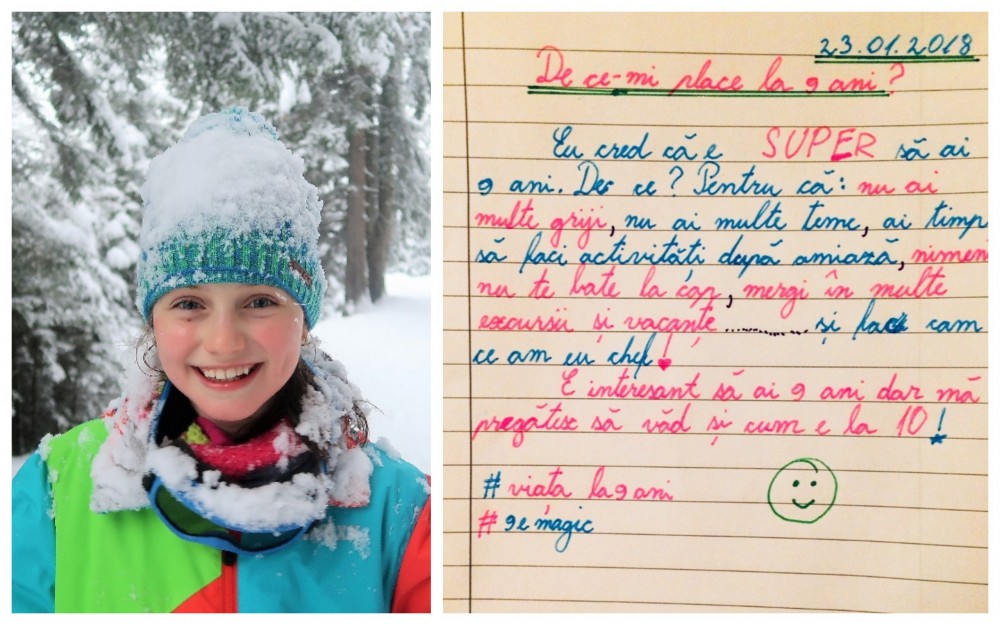 23.01.2018
De ce-mi place la 9 ani?
Eu cred că e SUPER să ai
9 ani. De ce? Pentru că: nu ai
multe griji, nu ai multe teme, ai timp
să faci activități după amiază, nimeni
nu te bate la cap, mergi în multe
excursii și vacanțe ............... și fac cam
ce am eu chef!
E interesant să ai 9 ani dar mă
pregătesc să văd și cum e la 10!
# viața la 9 ani
# 9 e magic